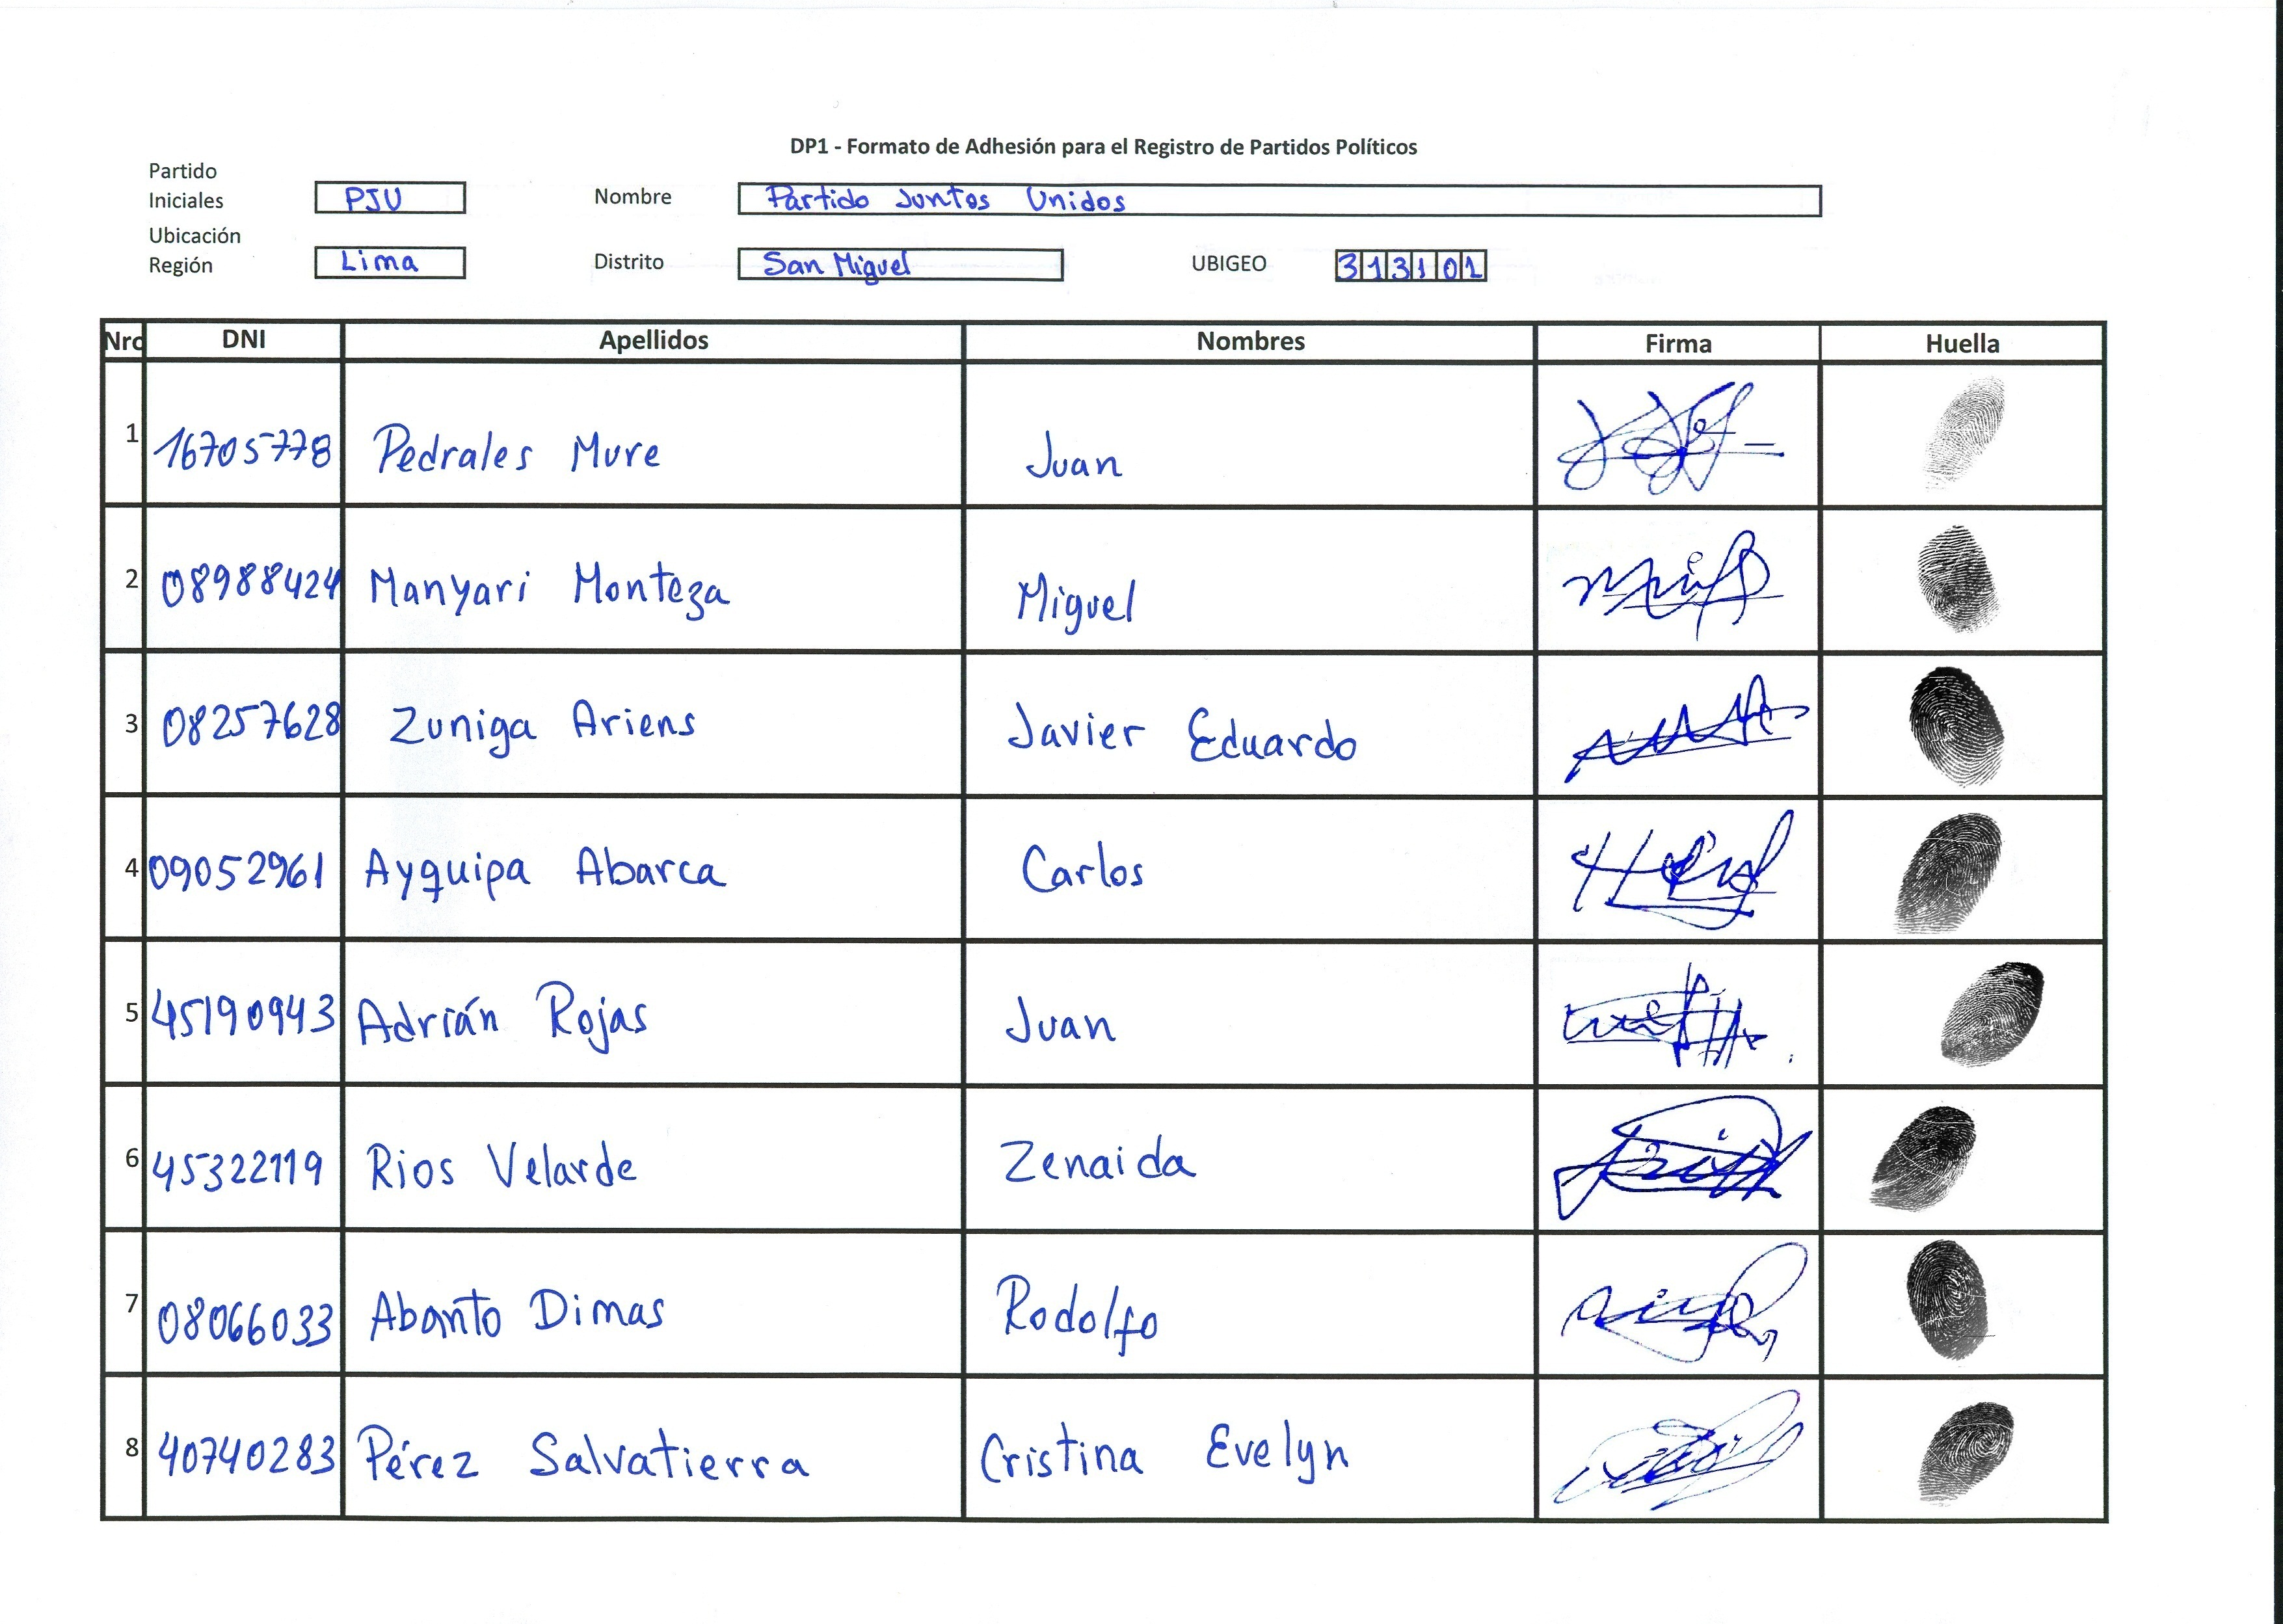 DP1 - Formato de Adhesión para el Registro de Partidos Políticos
Partido
Iniciales PJU Nombre Partido Juntos Unidos
Ubicación
Región Lima Distrito San Miguel UBIGEO 313101
Nro DNI Apellidos Nombres Firma Huella
1 16705778 Pedrales Mure Juan
2 08988424 Manyari Monteza Miguel
3 08257628 Zuniga Ariens Javier Eduardo
4 09052961 Ayquipa Abarca Carlos
5 45190943 Adrián Rojas Juan
6 45322119 Rios Velarde Zenaida
7 08066033 Abanto Dimas Rodolfo
8 40740283 Pérez Salvatierra Cristina Evelyn